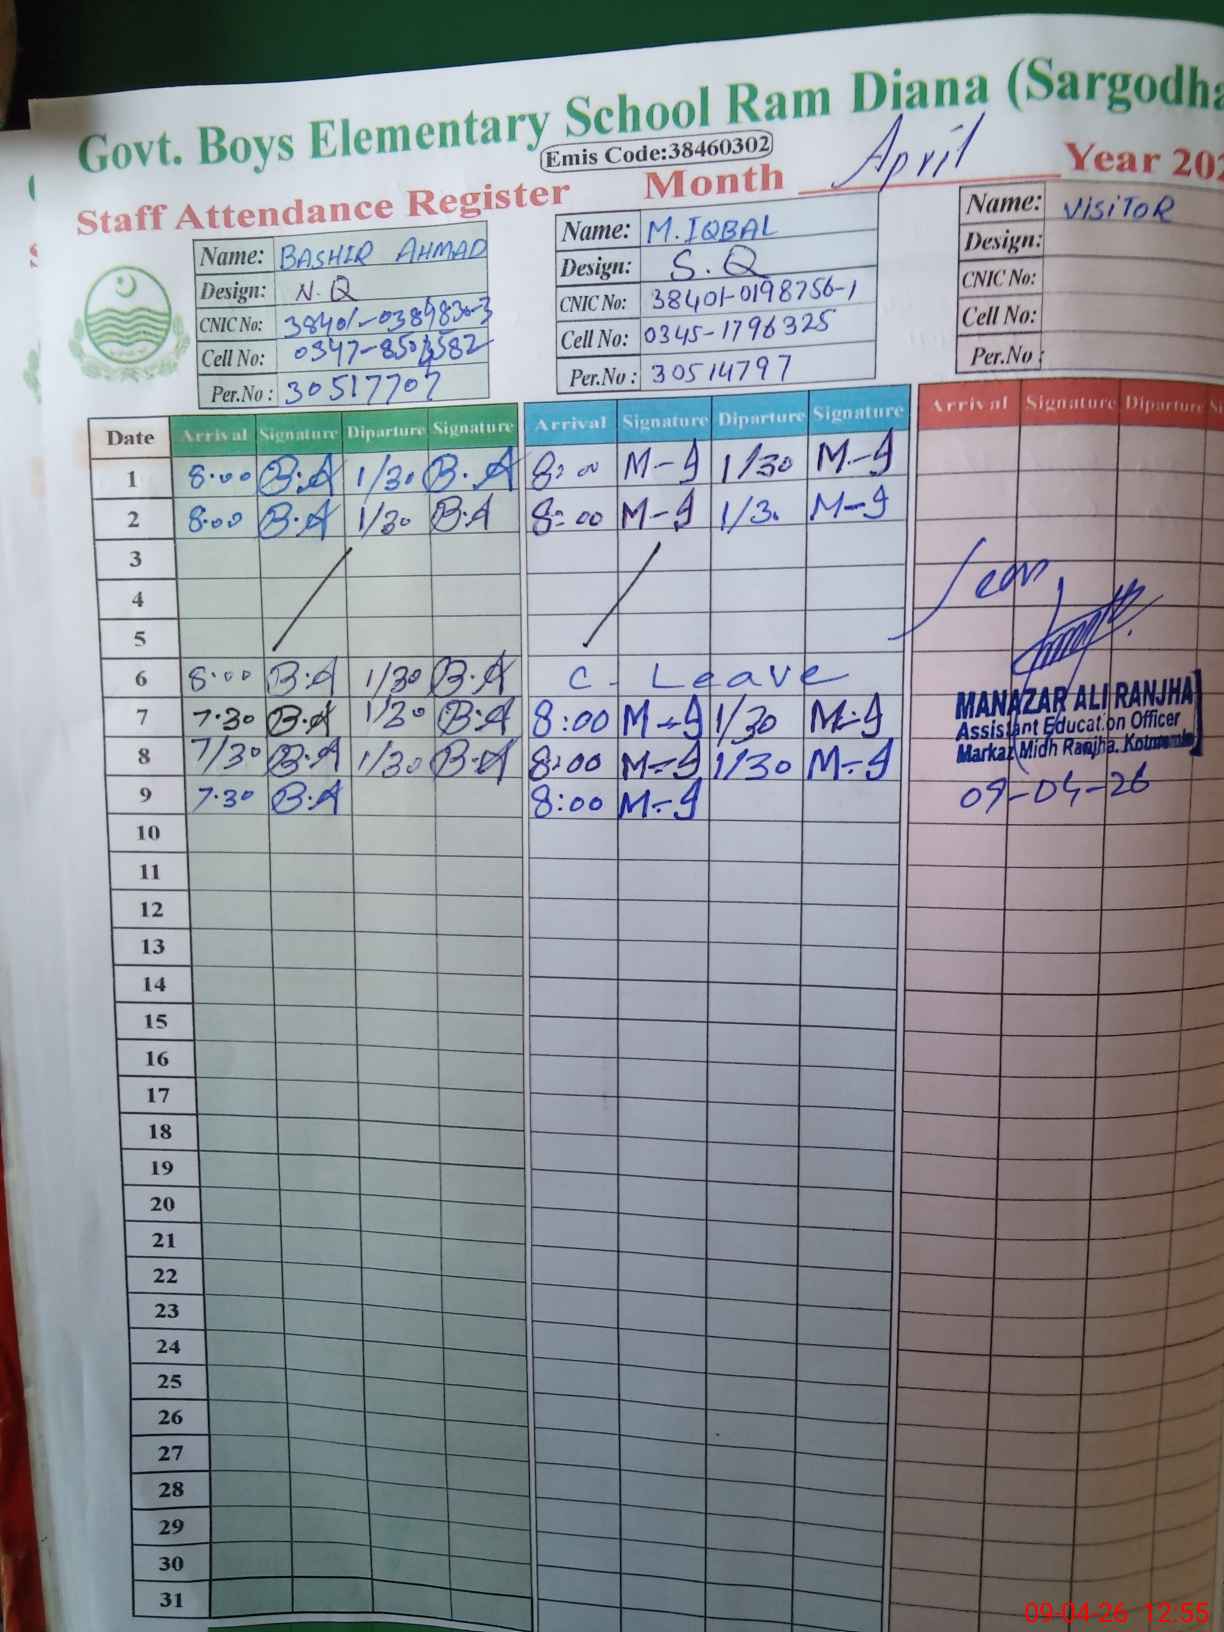 Govt. Boys Elementary School Ram Diana (Sargodha
Emis Code:38460302
Staff Attendance Register Month April Year 202
Name: BASHIR AHMAD
Design: N.Q
CNIC No:
Cell No:
Per.No : 30517707
Name: M.IQBAL
Design: S.Q
CNIC No: 38401-0198756-1
Cell No: 0345-1796325
Per.No : 30514797
Name: VISITOR
Design:
CNIC No:
Cell No:
Per.No :
Date Arrival Signature Diparture Signature Arrival Signature Diparture Signature Arrival Signature Diparture Si
1 8.00 B.A 1/30 B.A 8:00 M-I 1/30 M-I
2 8.00 B.A 1/30 B.A 8:00 M-I 1/3. M-I
3
4
5
6 8.00 B.A 1/30 B.A C. Leave
7 7.30 B.A 1/30 B.A 8:00 M-I 1/30 M-I
8 7/30 B.A 1/30 B.A 8:00 M-I 1/30 M-I
9 7.30 B.A 8:00 M-I
10
11
12
13
14
15
16
17
18
19
20
21
22
23
24
25
26
27
28
29
30
31
MANAZAR ALI RANJHA
Assistant Education Officer
Markaz Midh Ranjha.
09-04-26
09-04-26 12:55